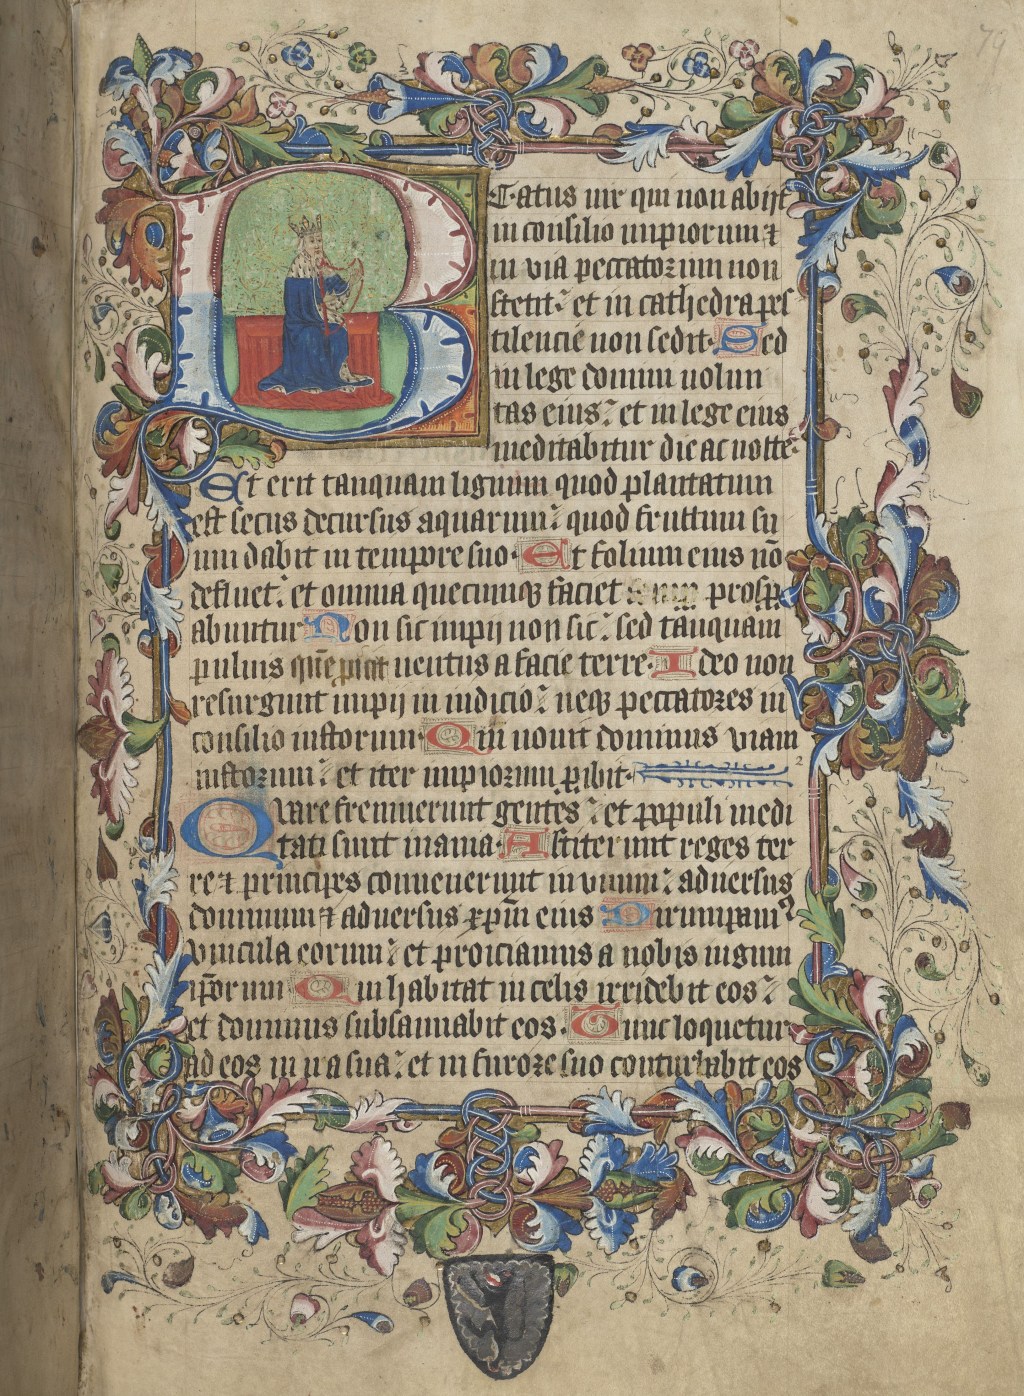 79
BEatus uir qui non abijt
in consilio impiorum ⁊
in via peccatorum non
stetit: et in cathedra pes
tilencie non sedit. Sed
in lege domini uolun
tas eius: et in lege eius
meditabitur die ac nocte:
Et erit tanquam lignum quod plantatum
est secus decursus aquarum: quod fructum su
um dabit in tempore suo. Et folium eius nō
defluet: et omnia quecumqꝫ faciet prospꝑ
abuntur Non sic impij non sic: sed tanquam
puluis quē ꝓicit uentus a facie terre. Ideo non
resurgunt impij in iudicio: neqꝫ peccatores in
consilio iustorum. Qm̄ nouit dominus viam
iustorum: et iter impiorum ꝑibit. 2
Quare fremuerunt gentes: et populi medi
tati sunt inania. Astiterunt reges ter
re ⁊ principes conuenerunt in vnum: aduersus
dominum ⁊ aduersus xp̄m eius Dirumpamꝰ
vincula eorum: et proiciamus a nobis iugum
ip̄orum Qui habitat in celis irridebit eos:
et dominus subsannabit eos. Tunc loquetur
ad eos in ira sua: et in furore suo conturbabit eos